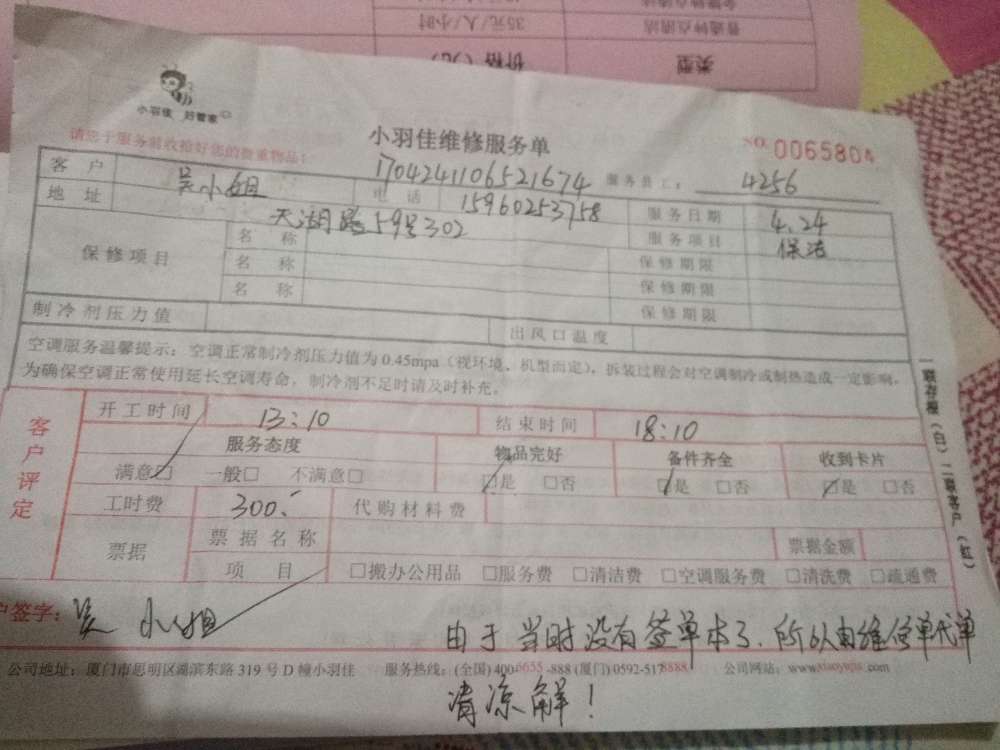 普通钟点清洁
35元/人/小时
类型
价格（元）
小羽佳 好管家
小羽佳维修服务单
NO. 0065804
请您于服务前收拾好您的贵重物品！
1704241106521674
服务员工： 4256
客户 吴小姐 电话 15960253758 服务日期 4.24
地址 天湖路59号302 服务项目 保洁
保修项目
名称 保修期限
名称 保修期限
名称 保修期限
制冷剂压力值 出风口温度
空调服务温馨提示：空调正常制冷剂压力值为0.45mpa（视环境、机型而定），拆装过程会对空调制冷或制热造成一定影响，
为确保空调正常使用延长空调寿命，制冷剂不足时请及时补充。
客户评定
开工时间 13:10 结束时间 18:10
服务态度 物品完好 备件齐全 收到卡片
满意□ 一般□ 不满意□ □是 □否 □是 □否 □是 □否
工时费 300.- 代购材料费
票据 票据名称 票据金额
项目 □搬办公用品 □服务费 □清洁费 □空调服务费 □清洗费 □疏通费
户签字： 吴小姐
由于当时没有签单本了，所以由维修单代单
请凉解！
公司地址：厦门市思明区湖滨东路319号D幢小羽佳 服务热线：(全国) 400-6655-888 (厦门) 0592-5178888 公司网站：www.xiaoyujia.com
一联存根（白）二联客户（红）